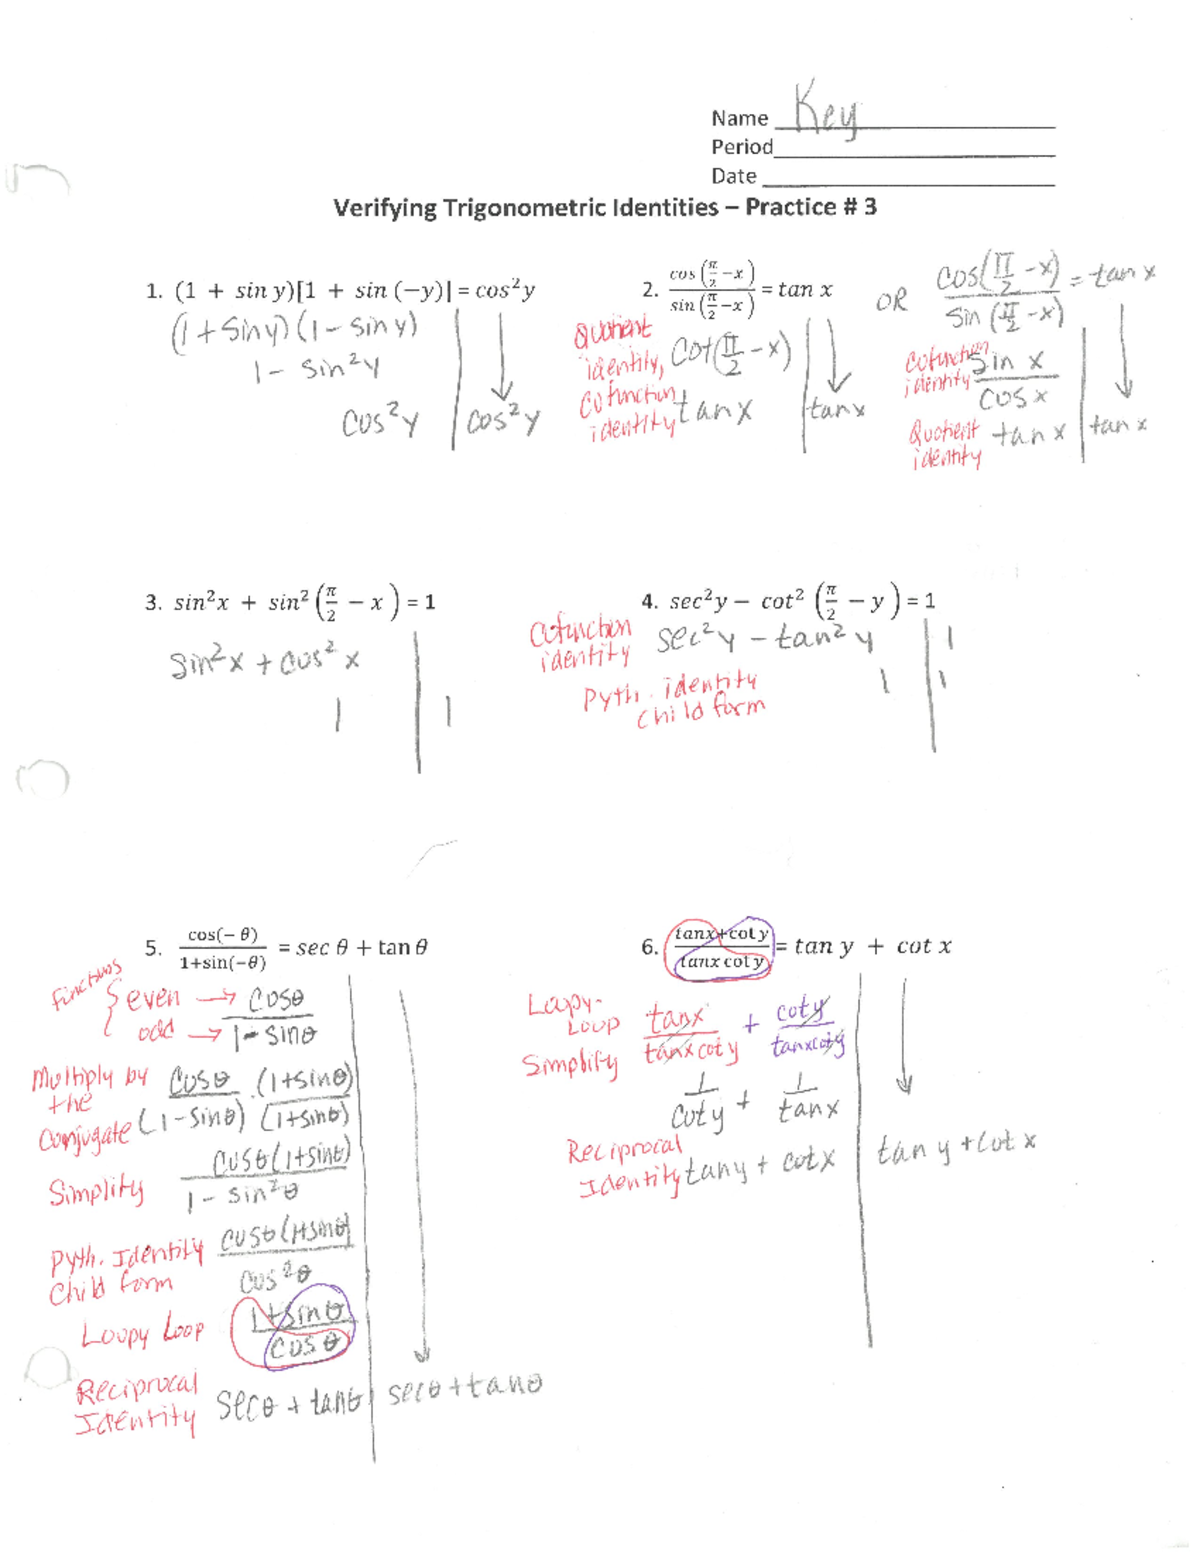 Name Key
Period
Date
Verifying Trigonometric Identities – Practice # 3
1. (1 + sin y)[1 + sin (−y)] = cos²y
(1 + sin y)(1 − sin y)
1 − sin²y
cos²y | cos²y
2. cos(π/2 − x) / sin(π/2 − x) = tan x
Quotient identity, cot(π/2 − x)
Cofunction identity tan x | tan x
OR cos(π/2 − x) / sin(π/2 − x) = tan x
Cofunction identity sin x / cos x
Quotient identity tan x | tan x
3. sin²x + sin²(π/2 − x) = 1
sin²x + cos²x
1 | 1
4. sec²y − cot²(π/2 − y) = 1
Cofunction identity sec²y − tan²y | 1
Pyth. identity child form 1 | 1
5. cos(− θ) / 1+sin(−θ) = sec θ + tan θ
Functions { even → cosθ
odd → 1 − sinθ
Multiply by the Conjugate cosθ / (1 − sinθ) · (1+sinθ) / (1+sinθ)
Simplify cosθ(1+sinθ) / 1 − sin²θ
Pyth. Identity Child form cosθ(1+sinθ) / cos²θ
Loopy Loop 1+sinθ / cosθ
Reciprocal Identity secθ + tanθ | secθ + tanθ
6. tanx+cot y / tanx cot y = tan y + cot x
Loopy-Loop tanx / tanx cot y + cot y / tanx cot y
Simplify
1 / cot y + 1 / tanx
Reciprocal Identity tan y + cot x | tan y + cot x